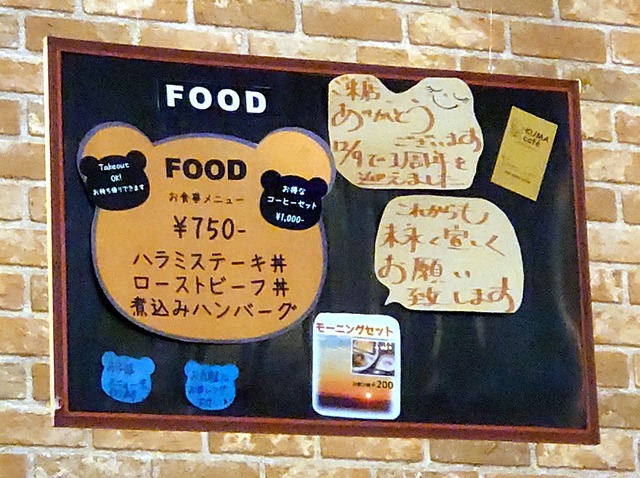 FOOD
FOOD
お食事メニュー
¥750-
ハラミステーキ丼
ローストビーフ丼
煮込みハンバーグ
Takeout
OK!
お持ち帰りできます
お得な
コーヒーセット
¥1,000-
ありがとう
ございます
12/9で1周年を
迎えました
これからも
末永く宜しく
お願い
致します
KUMA
café
モーニングセット
200